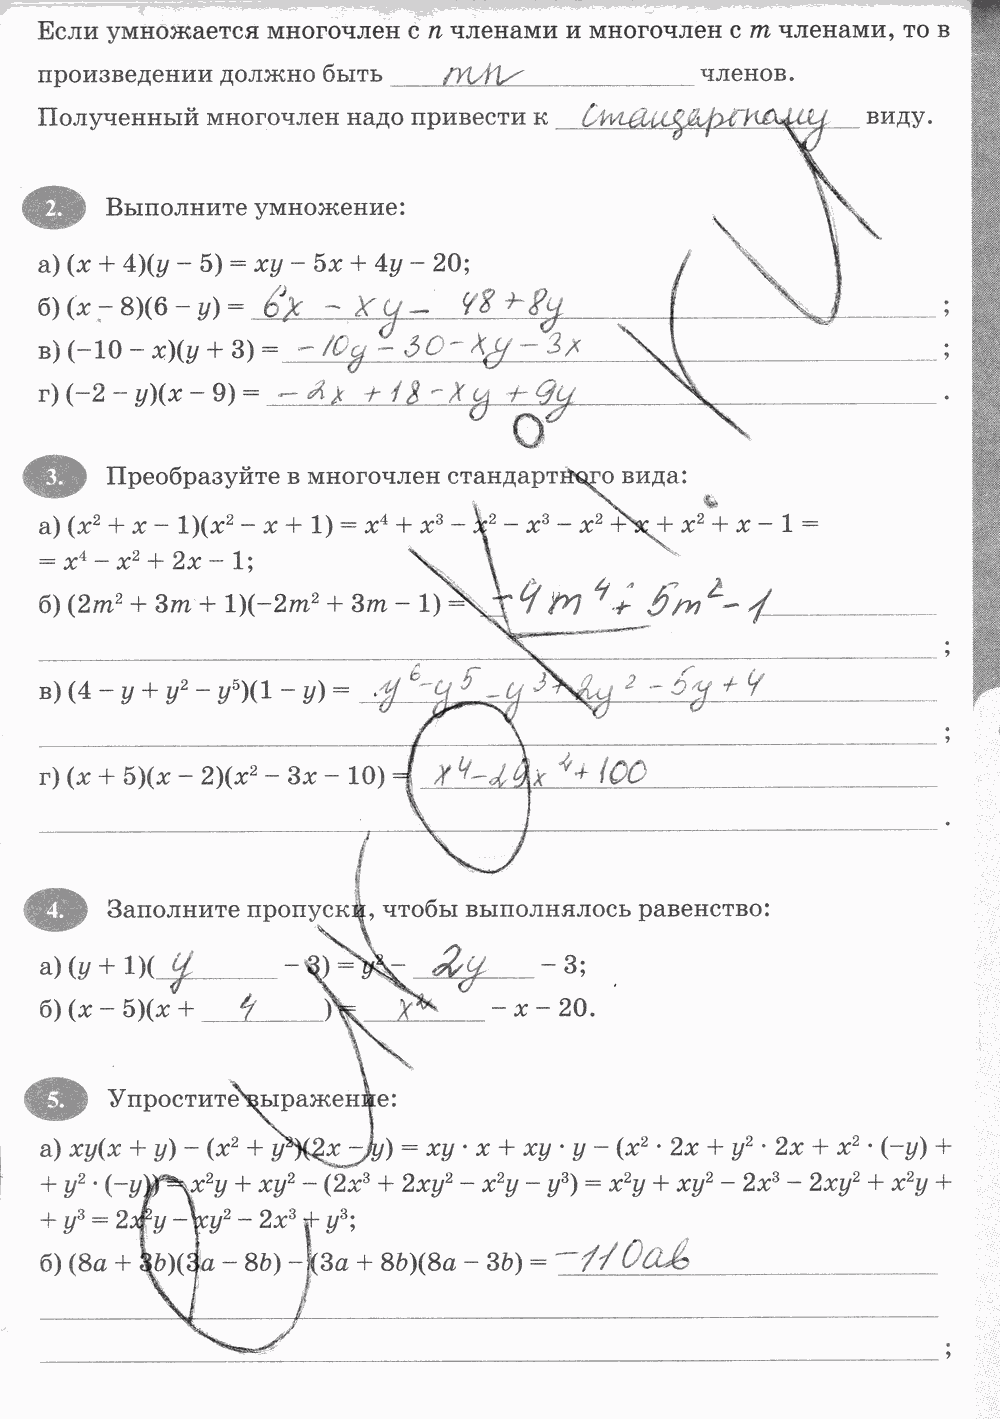 Если умножается многочлен с n членами и многочлен с m членами, то в
произведении должно быть mn членов.
Полученный многочлен надо привести к стандартному виду.
2. Выполните умножение:
а) (x + 4)(y − 5) = xy − 5x + 4y − 20;
б) (x − 8)(6 − y) = 6x − xy − 48 + 8y ;
в) (−10 − x)(y + 3) = −10y − 30 − xy − 3x ;
г) (−2 − y)(x − 9) = −2x + 18 − xy + 9y .
3. Преобразуйте в многочлен стандартного вида:
а) (x² + x − 1)(x² − x + 1) = x⁴ + x³ − x² − x³ − x² + x + x² + x − 1 =
= x⁴ − x² + 2x − 1;
б) (2m² + 3m + 1)(−2m² + 3m − 1) = −4m⁴ + 5m² − 1
;
в) (4 − y + y² − y⁵)(1 − y) = y⁶ − y⁵ − y³ + 2y² − 5y + 4
;
г) (x + 5)(x − 2)(x² − 3x − 10) = x⁴ − 29x² + 100
.
4. Заполните пропуски, чтобы выполнялось равенство:
а) (y + 1)( y − 3) = y² − 2y − 3;
б) (x − 5)(x + 4 ) = x² − x − 20.
5. Упростите выражение:
а) xy(x + y) − (x² + y²)(2x − y) = xy · x + xy · y − (x² · 2x + y² · 2x + x² · (−y) +
+ y² · (−y)) = x²y + xy² − (2x³ + 2xy² − x²y − y³) = x²y + xy² − 2x³ − 2xy² + x²y +
+ y³ = 2x²y − xy² − 2x³ + y³;
б) (8a + 3b)(3a − 8b) − (3a + 8b)(8a − 3b) = −110ab
;